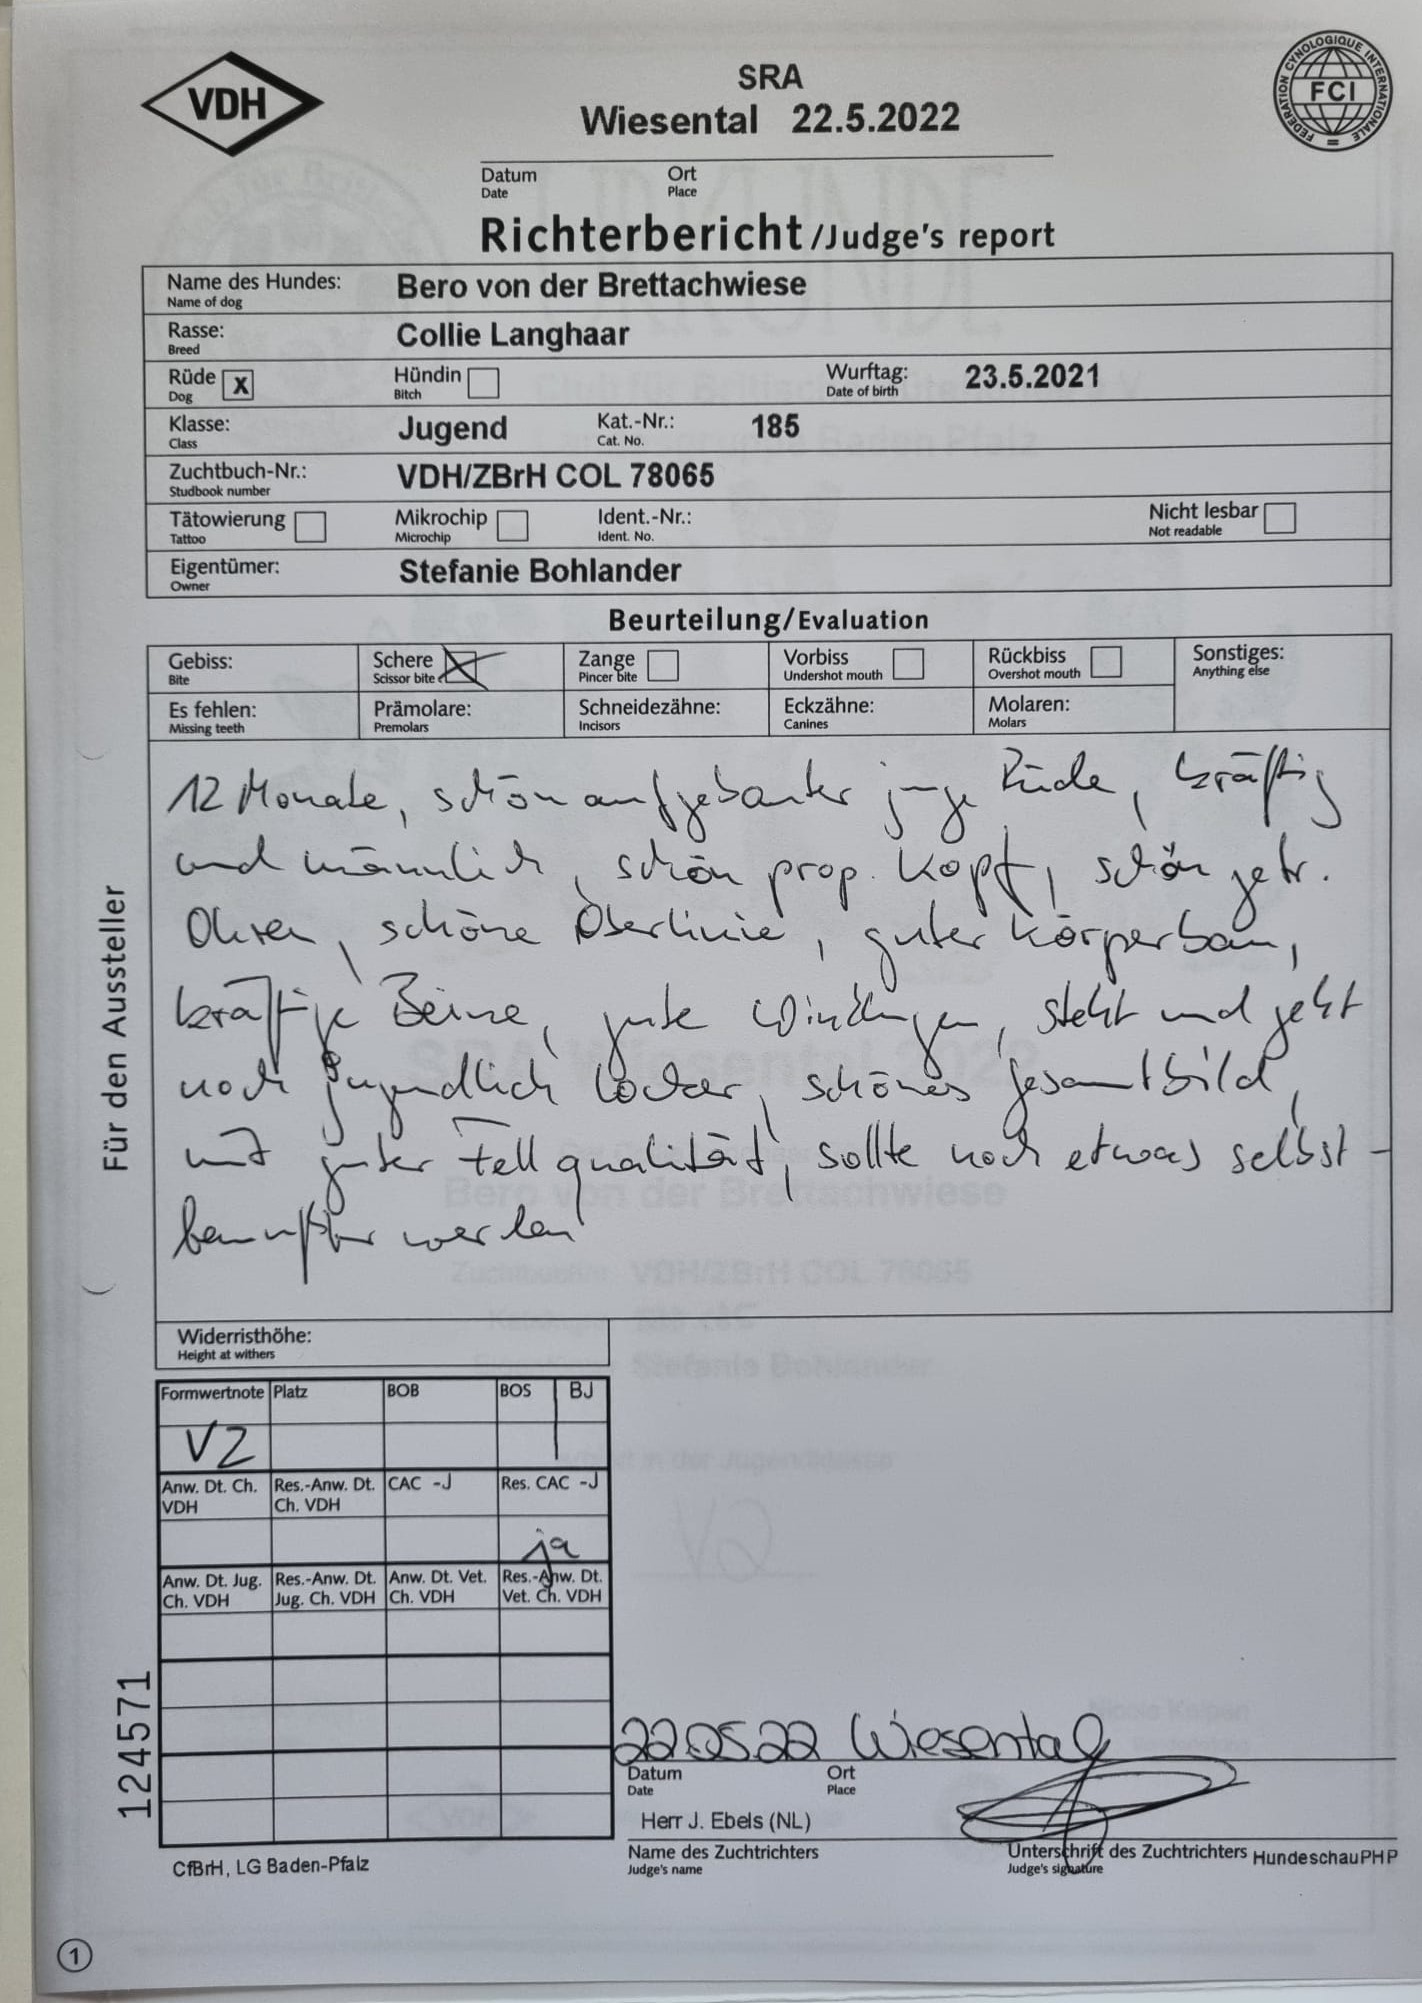 VDH
FEDERATION CYNOLOGIQUE INTERNATIONALE
FCI
SRA
Wiesental 22.5.2022
Datum Ort
Date Place
Richterbericht/Judge's report
Name des Hundes: Bero von der Brettachwiese
Name of dog
Rasse: Collie Langhaar
Breed
Rüde X Hündin Wurftag: 23.5.2021
Dog Bitch Date of birth
Klasse: Jugend Kat.-Nr.: 185
Class Cat. No.
Zuchtbuch-Nr.: VDH/ZBrH COL 78065
Studbook number
Tätowierung Mikrochip Ident.-Nr.: Nicht lesbar
Tattoo Microchip Ident. No. Not readable
Eigentümer: Stefanie Bohlander
Owner
Beurteilung/Evaluation
Gebiss: Schere Zange Vorbiss Rückbiss Sonstiges:
Bite Scissor bite Pincer bite Undershot mouth Overshot mouth Anything else
Es fehlen: Prämolare: Schneidezähne: Eckzähne: Molaren:
Missing teeth Premolars Incisors Canines Molars
12 Monate, schön aufgebauter junge Rüde, kräftig
und männlich, schön prop. Kopf, schön getr.
Ohren, schöne Oberlinie, guter Körperbau,
kräftige Beine, gute Winklungen, steht und geht
noch jugendlich locker, schönes Gesamtbild,
mit guter Fellqualität, sollte noch etwas selbst-
bewußter werden
Für den Aussteller
Widerristhöhe:
Height at withers
Formwertnote Platz BOB BOS BJ
V2
Anw. Dt. Ch. Res.-Anw. Dt. CAC -J Res. CAC -J
VDH Ch. VDH
ja
Anw. Dt. Jug. Res.-Anw. Dt. Anw. Dt. Vet. Res.-Anw. Dt.
Ch. VDH Jug. Ch. VDH Ch. VDH Vet. Ch. VDH
124571
22.05.22 Wiesental
Datum Ort
Date Place
Herr J. Ebels (NL)
Name des Zuchtrichters Unterschrift des Zuchtrichters HundeschauPHP
Judge's name Judge's signature
CfBrH, LG Baden-Pfalz
1